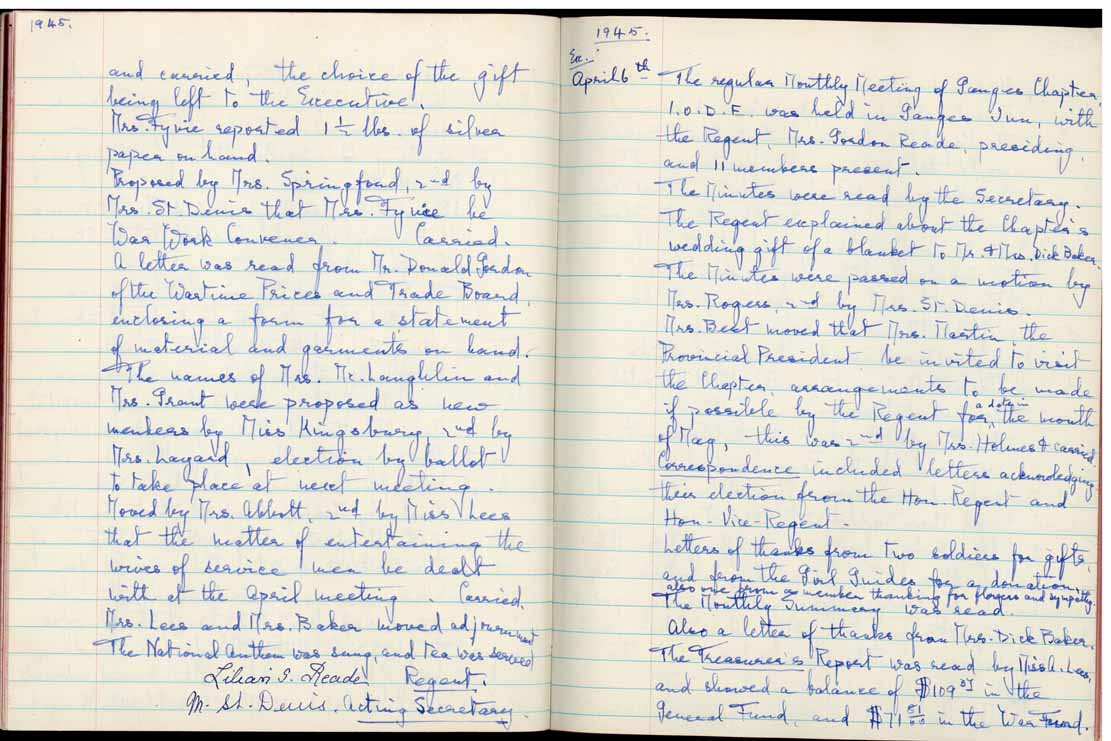 1945.
and carried, the choice of the gift
being left to the Executive.
Mrs. Fyvie reported 1½ lbs. of silver
paper on hand.
Proposed by Mrs. Springford, 2nd by
Mrs. St. Denis that Mrs. Fyvie be
War Work Convener. Carried.
A letter was read from Mr. Donald Gordon
of the Wartime Prices and Trade Board,
enclosing a form for a statement
of material and garments on hand.
The names of Mrs. Mc.Laughlin and
Mrs. Grant were proposed as new
members by Miss Kingsbury, 2nd by
Mrs. Layard, election by ballot
to take place at next meeting.
Moved by Mrs. Abbott, 2nd by Miss Lees
that the matter of entertaining the
wives of service men be dealt
with at the April meeting. Carried.
Mrs. Lees and Mrs. Baker moved adjournment
The National Anthem was sung, and tea was served
Lilian S. Reade Regent.
M. St. Denis. Acting Secretary.
1945.
April 6th The regular Monthly Meeting of Ganges Chapter,
I.O.D.E. was held in Ganges Inn, with
the Regent, Mrs. Gordon Reade, presiding,
and 11 members present.
The Minutes were read by the Secretary.
The Regent explained about the Chapter's
wedding gift of a blanket to Mr. & Mrs. Dick Baker.
The Minutes were passed on a motion by
Mrs. Rogers, 2nd by Mrs. St. Denis.
Mrs. Best moved that Mrs. Martin, the
Provincial President be invited to visit
the Chapter, arrangements to be made
if possible by the Regent for a date in the month
of May, this was 2nd by Mrs. Holmes & carried.
Correspondence included letters acknowledging
their election from the Hon. Regent and
Hon. Vice-Regent.
Letters of thanks from two soldiers for gifts,
and from the Girl Guides for a donation,
also one from a member thanking for flowers and sympathy.
The Monthly Summary was read.
Also a letter of thanks from Mrs. Dick Baker.
The Treasurer's Report was read by Miss A. Lees,
and showed a balance of $109 37 in the
General Fund, and $71 51/00 in the War Fund.